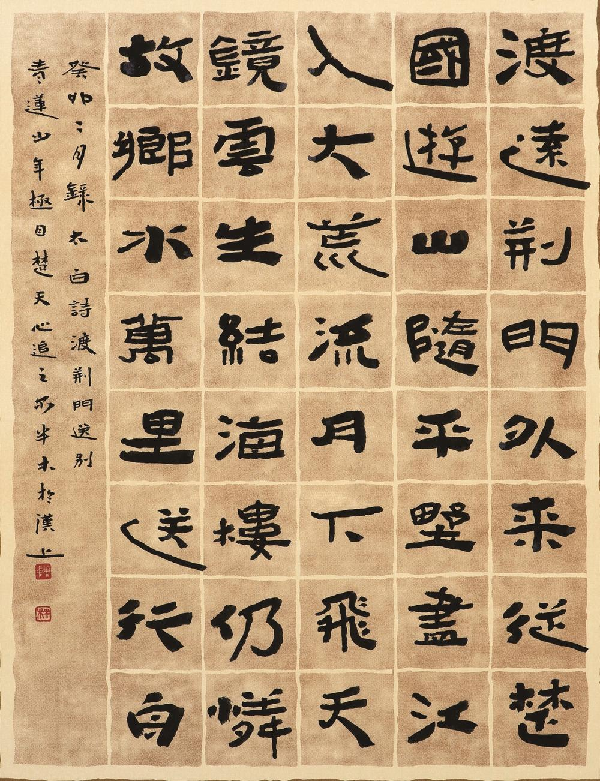 渡遠荆門外来從楚
國遊山隨平墅盡江
入大荒流月下飛天
鏡雲生結海樓仍憐
故鄉水萬里送行舟
癸卯二月錄太白詩渡荆門送別
青蓮少年極目楚天心追之半木於漢上